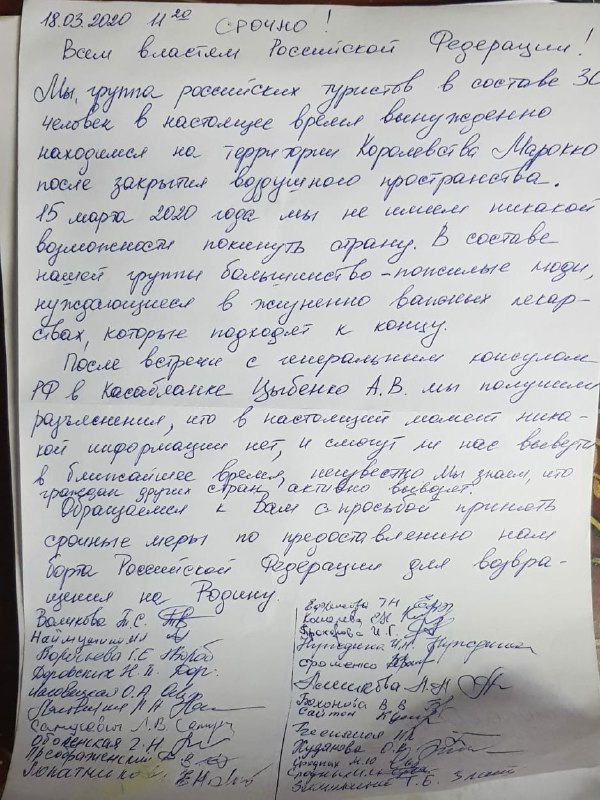 18.03.2020 11 20 СРОЧНО!
Всем властям Российской Федерации!
Мы, группа российских туристов в составе 30
человек в настоящее время вынужденно
находимся на территории Королевства Марокко
после закрытия воздушного пространства.
15 марта 2020 года мы не имеем никакой
возможности покинуть страну. В составе
нашей группы большинство - пожилые люди,
нуждающиеся в жизненно важных лекар-
ствах, которые подходят к концу.
После встречи с генеральным консулом
РФ в Касабланке Цыбенко А.В. мы получили
разъяснения, что в настоящий момент ника-
кой информации нет, и смогут ли нас вывезти
в ближайшее время, неизвестно. Мы знаем, что
граждан других стран активно вывозят.
Обращаемся к Вам с просьбой принять
срочные меры по предоставлению нам
борта Российской Федерации для возвра-
щения на Родину.
Волкова Т.С.
Воробьева Г.Е.
Боровских Н.П.
О.А.
Самусевич Л.В.
Оболенская Г.Н.
Преображенский
Лопатников
Т.Н.
Комалева
Прохорова И.Г.
Ерошенко
Плешкова А.А.
Вахонова В.В.
Саутов
Беспалая
Худякова О.В.
Т.Б.